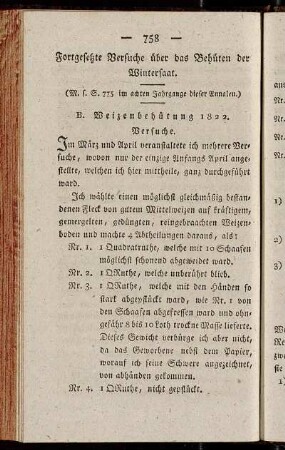 — 758 —
Fortgesetzte Versuche über das Behüten der
Wintersaat.
(M. s. S. 775 im achten Jahrgange dieser Annalen.)
E. Weizenbehütung 1822.
Versuche.
Im März und April veranstaltete ich mehrere Ver-
suche, wovon nur der einzige Anfangs April ange-
stellte, welchen ich hier mittheile, ganz durchgeführt
ward.
Ich wählte einen möglichst gleichmäßig bestan-
denen Fleck von gutem Mittelweizen auf kräftigem,
gemergelten, gedüngten, reingebrachten Weizen-
boden und machte 4 Abtheilungen daraus, als:
Nr. 1. 1 Quadratruthe, welche mit 10 Schaafen
möglichst schonend abgeweidet ward.
Nr. 2. 1 ORuthe, welche unberührt blieb.
Nr. 3. 1 ORuthe, welche mit den Händen so
stark abgepflückt ward, wie Nr. 1 von
den Schaafen abgefressen ward und ohn-
gefähr 8 bis 10 Loth trockne Masse lieferte.
Dieses Gewicht verbürge ich aber nicht,
da das Geworbene nebst dem Papier,
worauf ich seine Schwere angezeichnet,
von abhänden gekommen.
Nr. 4. 1 ORuthe, nicht gepflückt.